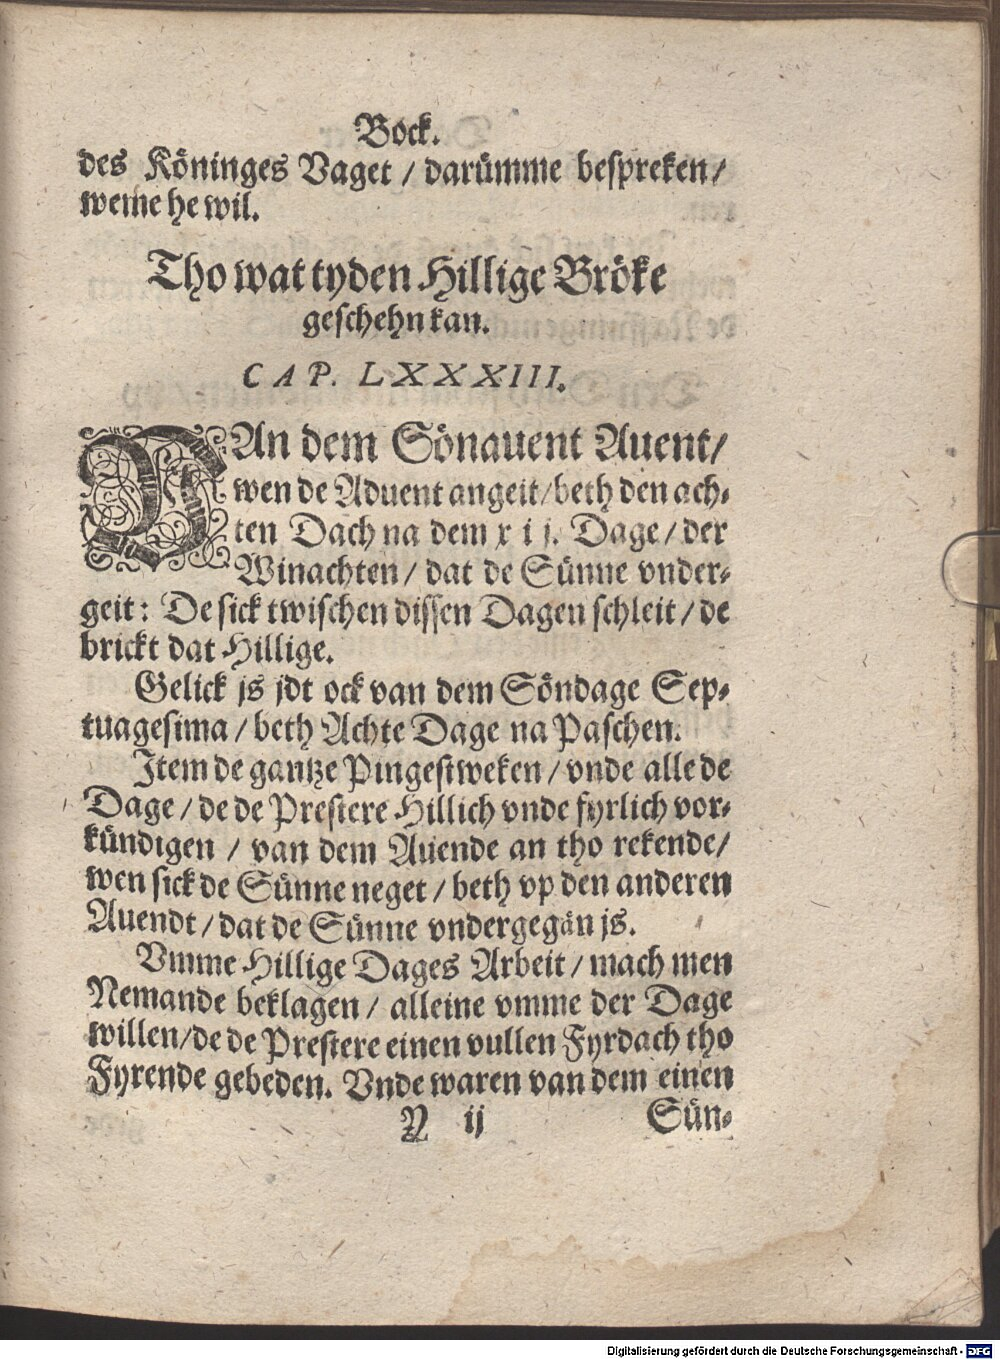 Bock.
des Köninges Vaget / darümme bespreken /
weme he wil.
Tho wat tyden Hillige Bröke
geschehn kan.
CAP. LXXXIII.
VAn dem Sönauent Auent /
wen de Aduent angeit / beth den ach-
ten Dach na dem x i j. Dage / der
Winachten / dat de Sünne vnder-
geit: De sick twischen dissen Dagen schleit / de
brickt dat Hillige.
Gelick js jdt ock van dem Söndage Sep-
tuagesima / beth Achte Dage na Paschen.
Item de gantze Pingestweken / vnde alle de
Dage / de de Prestere Hillich vnde fyrlich vor-
kündigen / van dem Auende an tho rekende /
wen sick de Sünne neget / beth vp den anderen
Auendt / dat de Sünne vndergegän js.
Vmme Hillige Dages Arbeit / mach men
Nemande beklagen / alleine vmme der Dage
willen / de de Prestere einen vullen Fyrdach tho
Fyrende gebeden. Vnde waren van dem einen
N ij Sün-
Digitalisierung gefördert durch die Deutsche Forschungsgemeinschaft - DFG